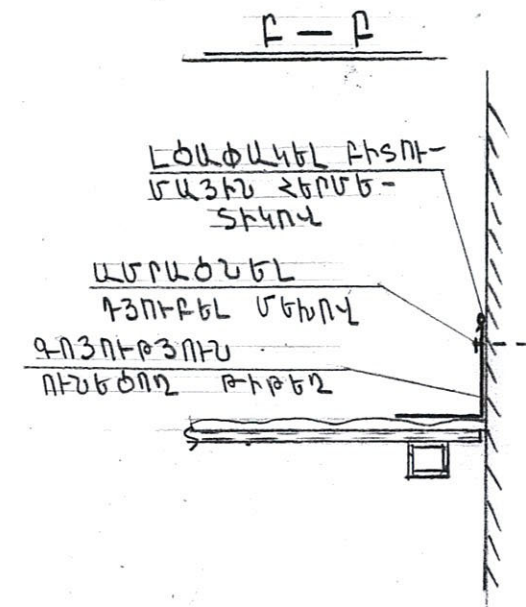 Բ — Բ
ԼԾԱՓԱԿԵԼ ԲԻՏՈՒ-
ՄԱՅԻՆ ՀԵՐՄԵ-
ՏԻԿՈՎ
ԱՄՐԱՑՆԵԼ
ԴՅՈՒԲԵԼ ՄԵԽՈՎ
ԳՈՅՈՒԹՅՈՒՆ
ՈՒՆԵՑՈՂ ԹԻԹԵՂ